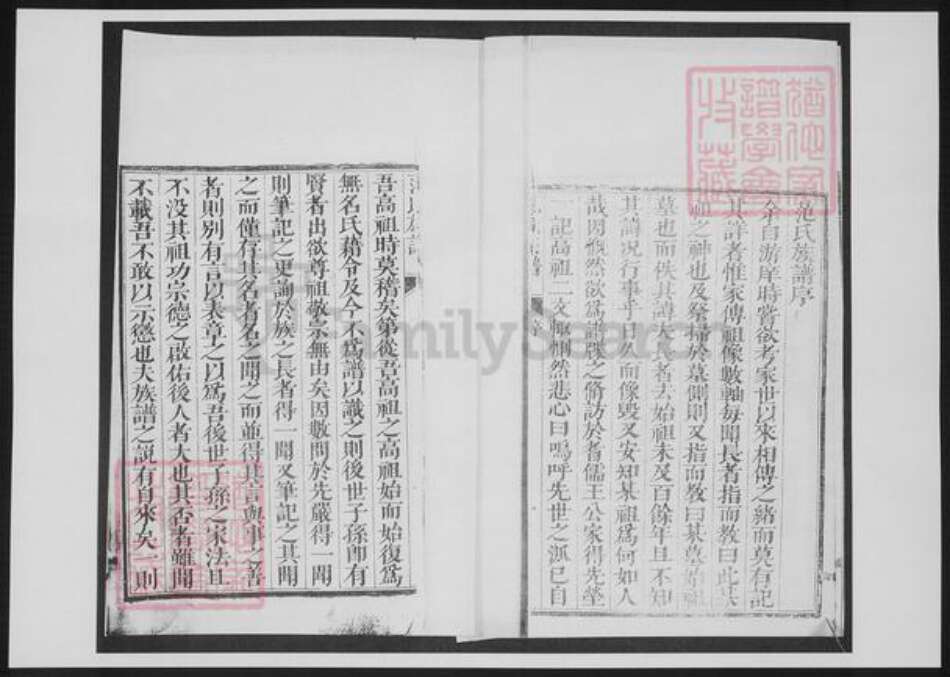 范氏族譜序
余自游庠時嘗欲考家世以來相傳之緒而莫有記
其詳者惟家傳祖像數軸每聞長者指而教曰此某
祖之神也及祭掃於墓側則又指而教曰某墓始祖
墓也而佚其諱大者去始祖未及百餘年且不知
其諱况行事乎日久而像毀又安知某祖爲何如人
哉因慨然欲爲譜牒之脩訪於耆儒王公家得先塋
一記高祖二文輒惻然悲心曰嗚呼先世之派已自
吾高祖時莫稽矣第從吾高祖之高祖始而始復爲
無名氏藉令及今不爲譜以識之則後世子孫卽有
賢者出欲尊祖敬宗無由矣因數問於先嚴得一聞
則筆記之更詢於族之長者得一聞又筆記之其聞
之而僅存其名者名之聞之而並得其言與事之善
者則別有言以表章之以爲吾後世子孫之家法且
不没其祖功宗德之啟佑後人者大也其否者雖聞
不載吾不敢以示懲也夫族譜之説有自來矣一則
FamilySearch